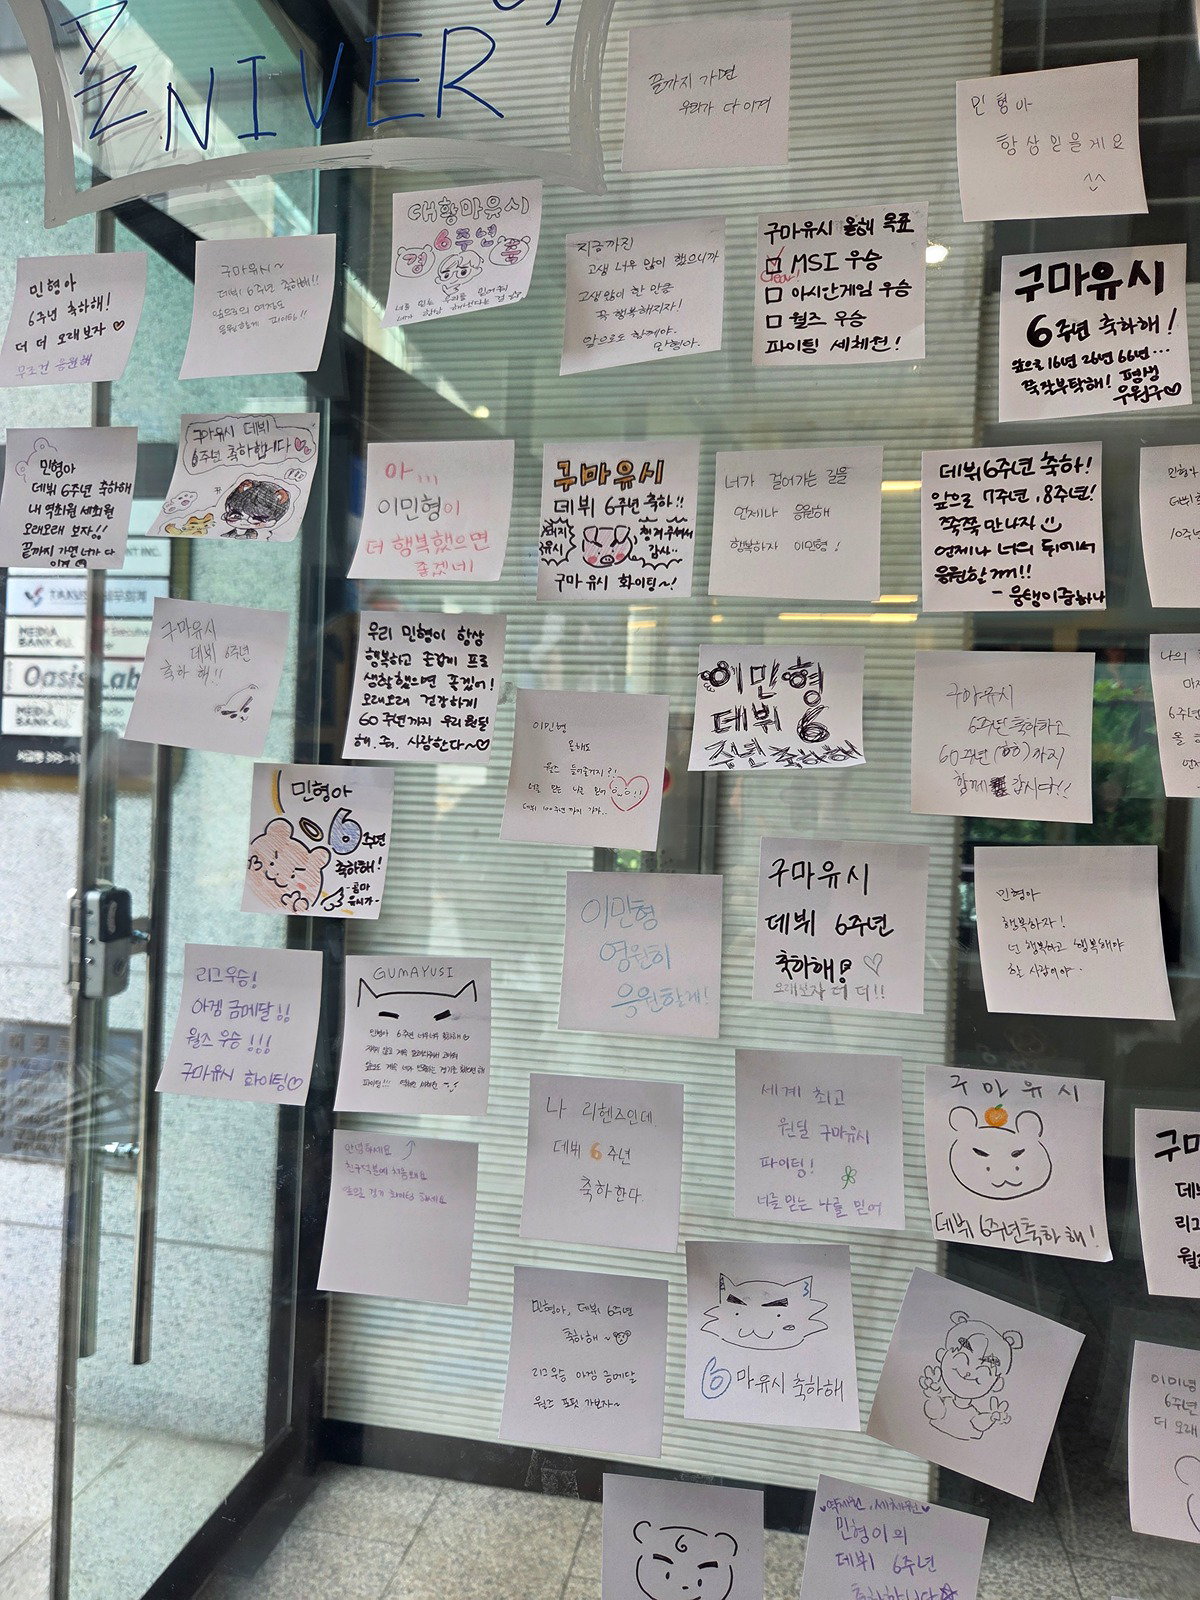 NIVER
끝까지 가면
우리가 다 이겨
민형아
항상 믿을게요
^^
CH황마유시
6주년
지금까진
고생 너무 많이 했으니까
고생 많이 한 만큼
꼭 행복해지자!
앞으로도 함께야.
민형아.
구마유시 올해 목표
MSI 우승
아시안게임 우승
월즈 우승
파이팅 세체원!
구마유시
6주년 축하해!
앞으로 16년 26년 66년...
쭉 잘부탁해! 평생
우원구♡
민형아
6주년 축하해!
더 더 오래보자♡
무조건 응원해
구마유시~
데뷔 6주년 축하해!!
응원할게 파이팅!!
민형아
데뷔 6주년 축하해
내 역최원 세최원
오래오래 보자!!
끝까지 가면 너가 다
이겨
구마유시 데뷔
6주년 축하합니다
아...
이민형이
더 행복했으면
좋겠네!
구마유시
데뷔 6주년 축하!!
돼지
유시
구마유시 화이팅~!
너가 걸어가는 길을
언제나 응원해
행복하자 이민형!
데뷔 6주년 축하!
앞으로 7주년, 8주년!
쭉쭉 만나자
언제나 너의 뒤에서
응원할게!!
- 웅탱이중하나
민형아
10주년
TAKUS
MEDIA
BANK 4U.
Oasis Lab
구마유시
데뷔 6주년
축하해!!
우리 민형이 항상
행복하고 즐겁게 프로
생활했으면 좋겠어!
오래오래 건강하게
60주년까지 우리 원딜
해.줘. 사랑한다~♡
이민형
월즈 들어올리자?!
너를 믿는 나를 믿어
데뷔 100주년까지 가자..
이민형
데뷔 6
주년 축하해
구마유시
6주년축하하고
60주년(ㅎㅎ)까지
함께 갑시다!!
나의
6주년
민형아
6주년
축하해!
-굼마
유시가-
이민형
영원히
응원할게!
구마유시
데뷔 6주년
축하해! ♡
오래보자 더 더!!
민형아
행복하자!
넌 행복하고 행복해야
할 사람이야.
리그우승!
아겜 금메달!!
월즈 우승!!!
구마유시 화이팅♡
GUMAYUSI
안녕하세요
친구덕분에 처음봬요
오늘 경기 화이팅 하세요
나 리헨즈인데
데뷔 6주년
축하한다.
세계 최고
원딜 구마유시
파이팅!
너를 믿는 나를 믿어
구마유시
데뷔 6주년축하해!
구마
데뷔
리그
월즈
민형아, 데뷔 6주년
축하해~
리그우승 아겜 금메달
월즈 포핏 가보자~
6마유시 축하해
이민형
6주년
더 오래
역체원, 세체원
민형이의
데뷔 6주년
축하합니다